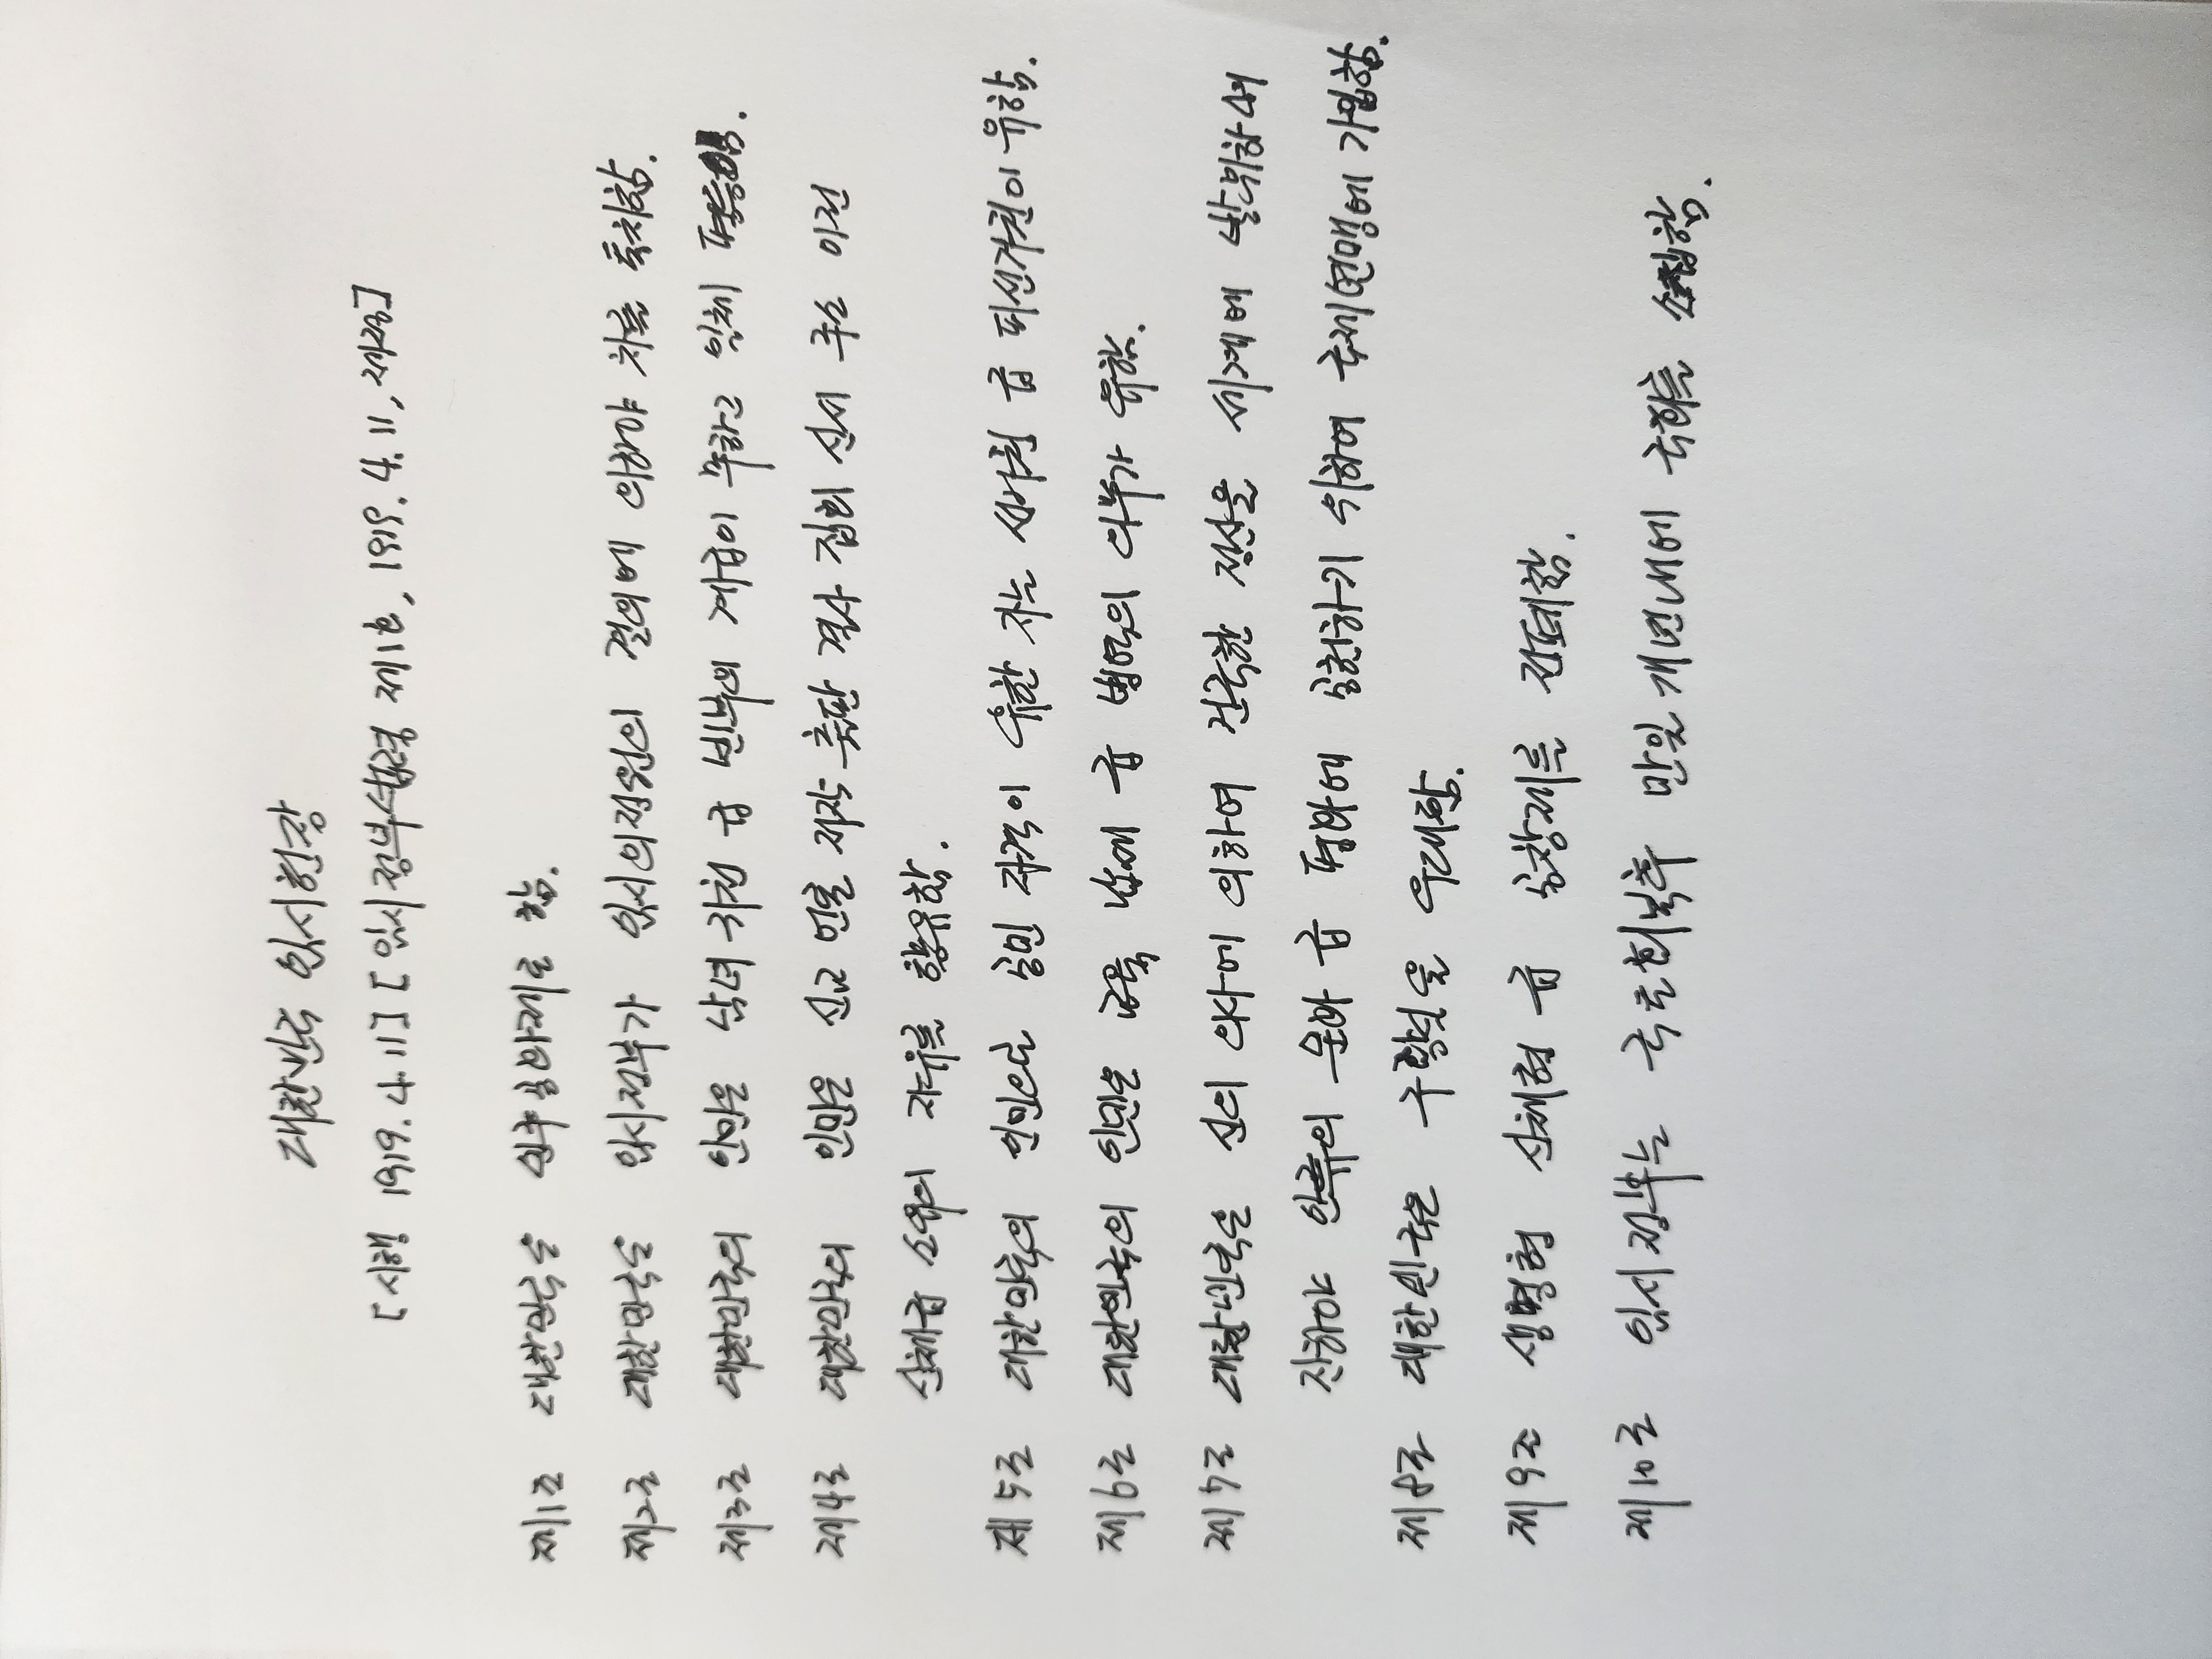 대한민국 임시헌장
[시행 1919. 4. 11] [임시정부법령 제1호, 1919. 4. 11, 제정]
제1조 대한민국은 민주공화제로 함.
제2조 대한민국은 임시정부가 임시의정원의 결의에 의하야 차를 통치함.
제3조 대한민국의 인민은 남녀 귀천 급 빈부의 계급이 무하고 일체 평등임.
제4조 대한민국의 인민은 신교 언론 저작 출판 결사 집회 신서 주소 이전
신체급 소유의 자유를 향유함.
제5조 대한민국의 인민으로 공민 자격이 유한 자는 선거권 급 피선거권이 유함.
제6조 대한민국의 인민은 교육 납세 급 병역의 의무가 유함.
제7조 대한민국은 신의 의사에 의하여 건국한 정신을 세계에 발휘하며
진하야 인류의 문화 급 평화에 공헌하기 위하여 국제연맹에 가입함.
제8조 대한민국은 구황실을 우대함.
제9조 생명형 신체형 급 공창제를 전폐함.
제10조 임시정부는 국토회복후 만일개년내에 국회를 소집함.